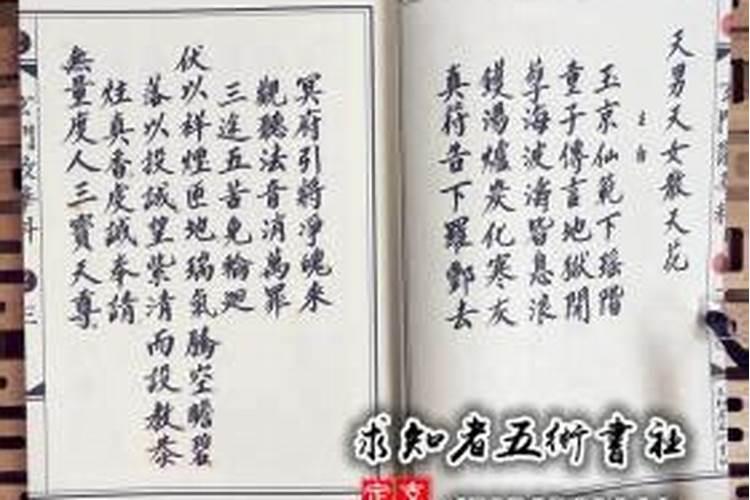 天男天女散天花
玉京仙範下瑶階
童子傳言地獄開
孽海波濤皆息浪
鑊湯爐炭化寒灰
真符告下羅酆去
冥府引將凈魄来
觀聽法音消萬罪
三途五苦免輪廻
伏以祥煙匝地瑞氣騰空瞻碧
落以投誠望紫清而設教恭
炷真香虔誠奉請
無量度人三寶天尊
求知者五術書社